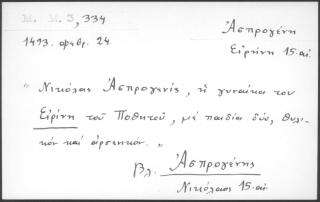 Μ. Μ. 3, 334
1493. φαβρ. 24
Ἀσπρογένη
Εἰρήνη 15. αἰ.
" Νικόλαος Ἀσπρογενίς, ἡ γυναίκα του
Εἰρίνη τοῦ Ποθητοῦ, μέ παιδία δύο, θυλι-
κόν καί ἀρσενικόν. "
Βλ. Ἀσπρογένης
Νικόλαος 15. αἰ.